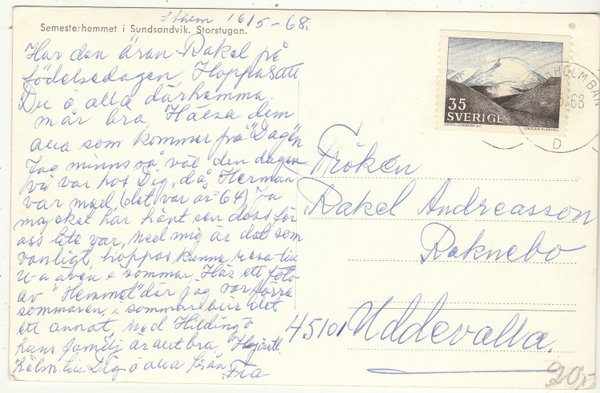 Sthlm 16/5-68.
Semesterhemmet i Sundsandvik. Storstugan.
Har den äran Rakel på
födelsedagen. Hoppas att
Du o alla därhemma
mår bra. Hälsa dem
alla som kommer på "Dagen"
Jag minns så väl den dagen
vi var hos Dig, då Herman
var med, (det var år 64) Ja
mycket har hänt sen dess för
oss lite var, med mig är det som
vanligt, hoppas kunna resa till
U-a även i sommar. Här ett foto
av "Hemmet" där jag var förra
sommaren, i sommar blir det
ett annat, med Hilding o
hans familj är allt bra.
Hälsn till Dig o alla från
35
SVERIGE
68
D
Fröken
Rakel Andreasson
Raknebo
45101 Uddevalla.
20,-